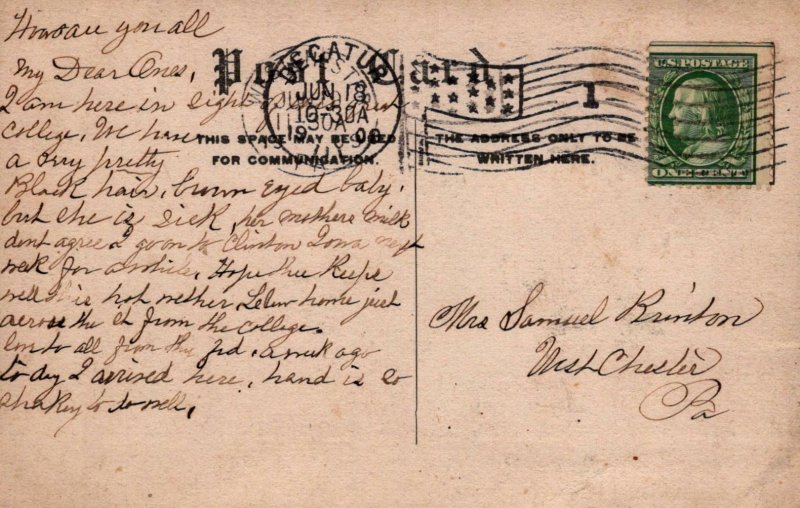 How are you all
Post Card
My Dear Ones,
I am here in sight
college, We have
a very pretty
Black hair, brown Eyed baby,
but she is sick, her mothers milk
dont agree I go on to Clinton Iowa next
week for awhile, Hope thee Keeps
well is hot wether home just
across the st from the college.
to all from thy frd. a week ago
to day I arrived here, hand is so
shakey to do well,
DECATUR
JUN 18
10 30A
ILL
THIS SPACE MAY BE USED
FOR COMMUNICATION.
THE ADDRESS ONLY TO BE
WRITTEN HERE.
1
U.S. POSTAGE
ONE CENT
Mrs Samuel Brinton
West Chester
Pa